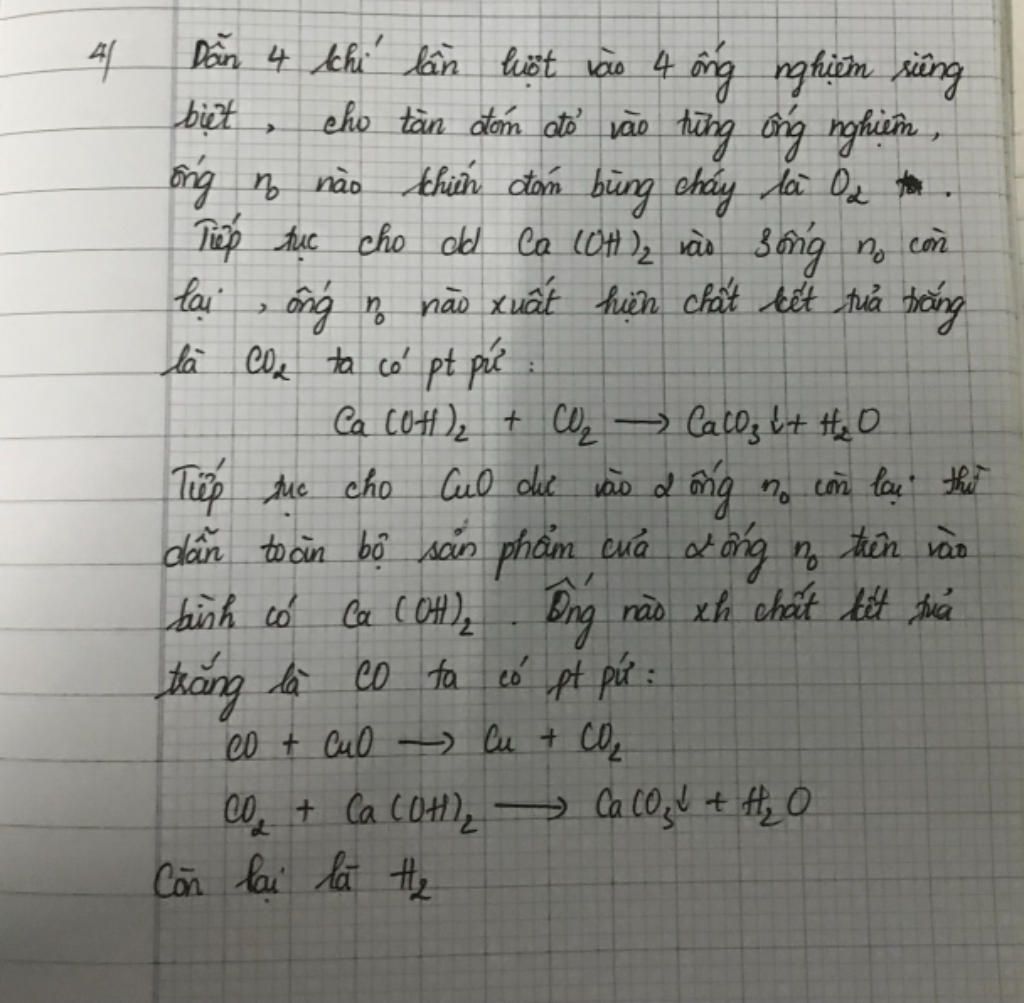 4/ Dẫn 4 khí lần lượt vào 4 ống nghiệm riêng
biệt, cho tàn đóm đỏ vào từng ống nghiệm,
ống n₀ nào khiến đóm bùng cháy là O₂.
Tiếp tục cho dd Ca(OH)₂ vào 3 ống n₀ còn
lại, ống n₀ nào xuất hiện chất kết tủa trắng
là CO₂ ta có pt pứ:
Ca(OH)₂ + CO₂ → CaCO₃↓ + H₂O
Tiếp tục cho CuO dư vào 2 ống n₀ còn lại thì
dẫn toàn bộ sản phẩm của 2 ống n₀ trên vào
bình có Ca(OH)₂. Ống nào xh chất kết tủa
trắng là CO ta có pt pứ:
CO + CuO → Cu + CO₂
CO₂ + Ca(OH)₂ → CaCO₃↓ + H₂O
Còn lại là H₂